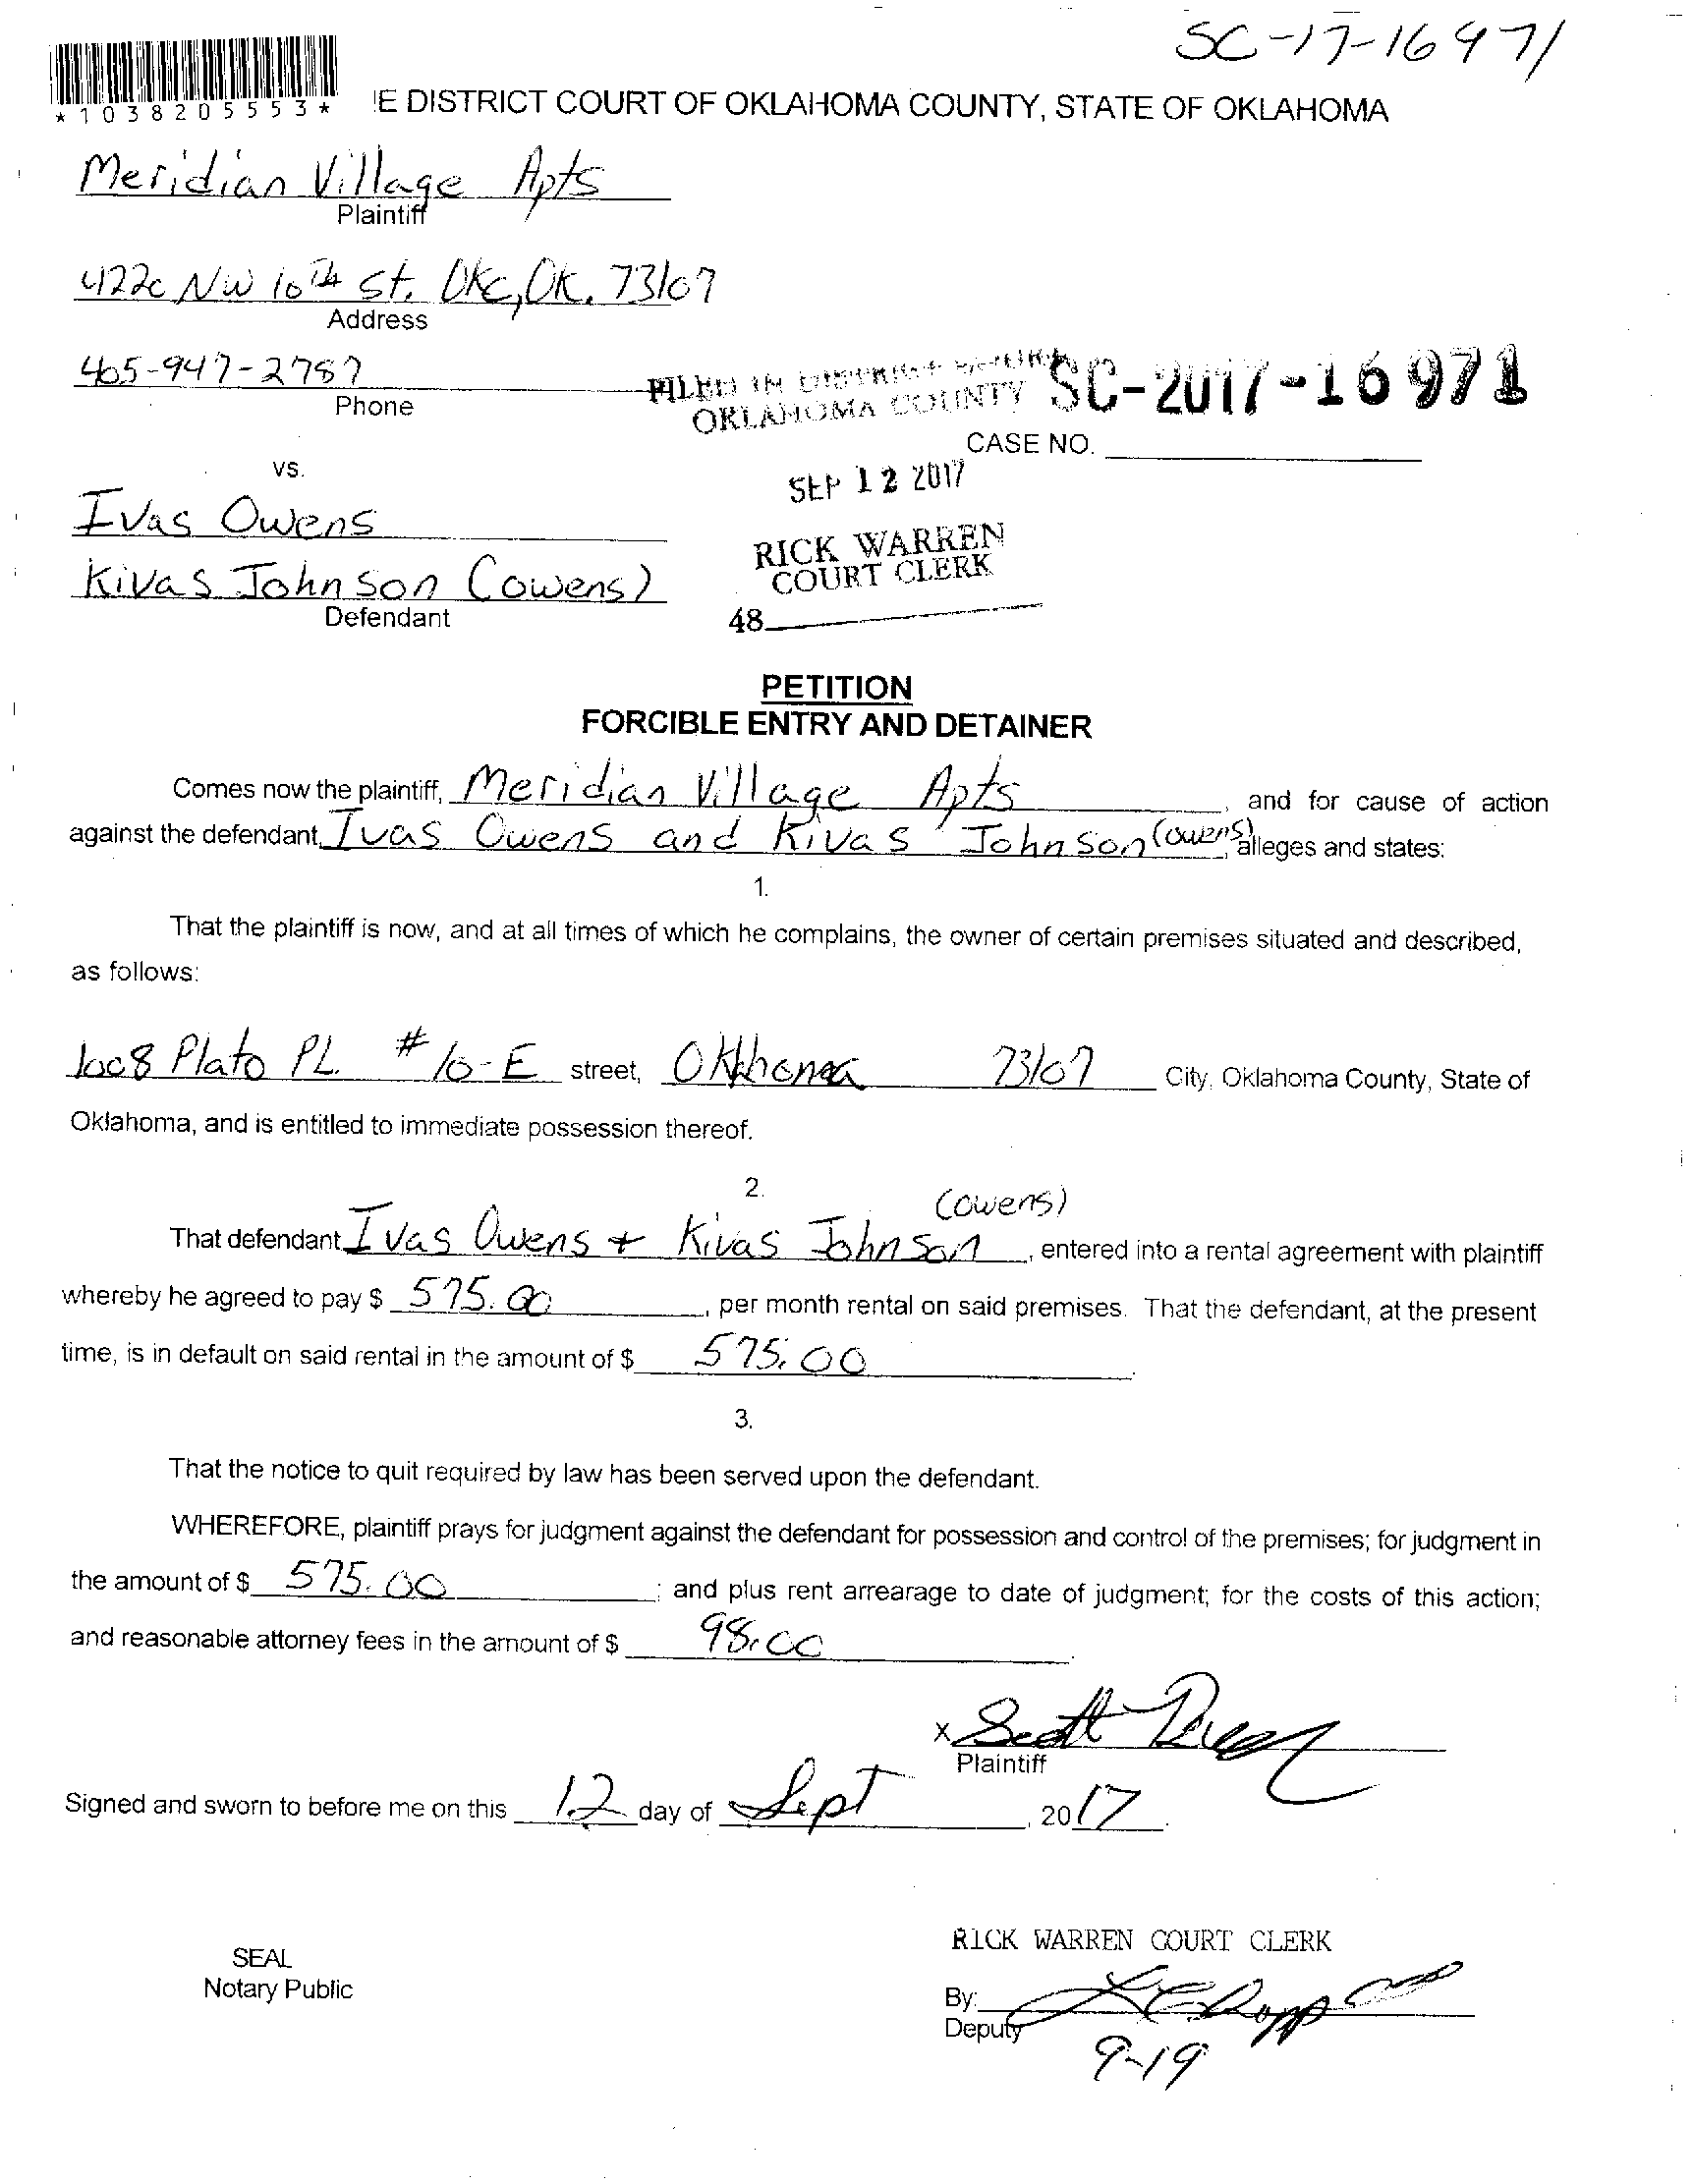 SC-17-16971
*1038205553* IE DISTRICT COURT OF OKLAHOMA COUNTY, STATE OF OKLAHOMA
Meridian Village Apts
Plaintiff
4220 NW 10th St. OKC, OK. 73107
Address
405-947-2787
Phone
FILED IN DISTRICT COURT
OKLAHOMA COUNTY
SC-2017-16971
CASE NO.
vs.
SEP 12 2017
Ivas Owens
RICK WARREN
COURT CLERK
Kivas Johnson (owens)
Defendant
48
PETITION
FORCIBLE ENTRY AND DETAINER
Comes now the plaintiff, Meridian Village Apts, and for cause of action
against the defendant, Ivas Owens and Kivas Johnson (owens), alleges and states:
1.
That the plaintiff is now, and at all times of which he complains, the owner of certain premises situated and described,
as follows:
1008 Plato PL. #10-E street, Oklahoma 73107 City, Oklahoma County, State of
Oklahoma, and is entitled to immediate possession thereof.
2.
(owens)
That defendant Ivas Owens + Kivas Johnson, entered into a rental agreement with plaintiff
whereby he agreed to pay $ 575.00, per month rental on said premises. That the defendant, at the present
time, is in default on said rental in the amount of $ 575.00.
3.
That the notice to quit required by law has been served upon the defendant.
WHEREFORE, plaintiff prays for judgment against the defendant for possession and control of the premises; for judgment in
the amount of $ 575.00; and plus rent arrearage to date of judgment; for the costs of this action;
and reasonable attorney fees in the amount of $ 98.00.
x Scott
Plaintiff
Signed and sworn to before me on this 12 day of Sept, 2017.
RICK WARREN COURT CLERK
SEAL
Notary Public
By:
Deputy
9-19